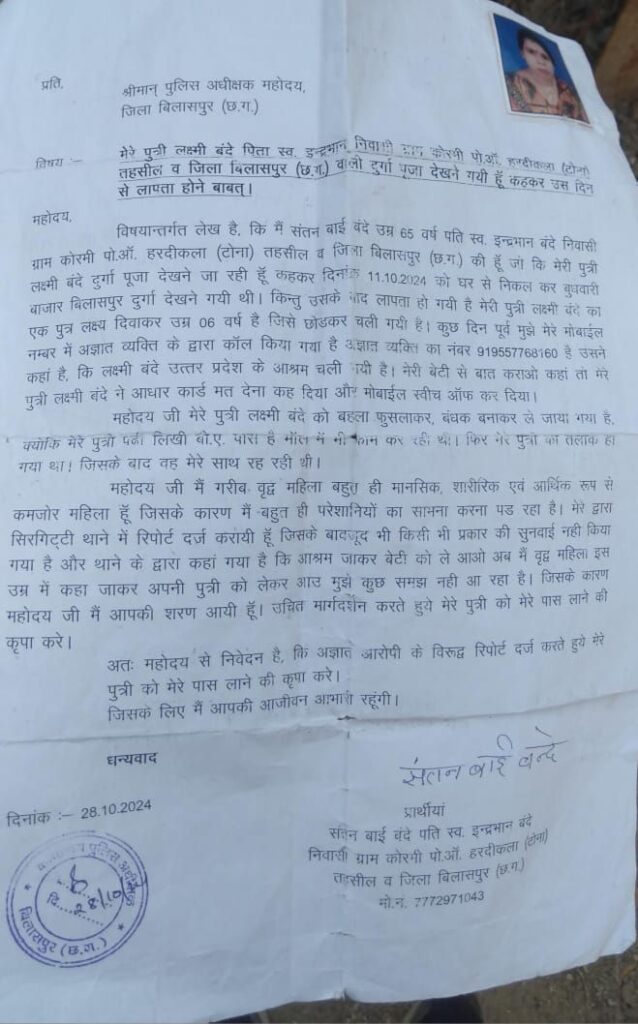 प्रति,
श्रीमान् पुलिस अधीक्षक महोदय,
जिला बिलासपुर (छ.ग.)
विषय :– मेरे पुत्री लक्ष्मी बंदे पिता स्व. इन्द्रभान निवासी ग्राम कोरमी पो.ऑ. हरदीकला (टोना)
तहसील व जिला बिलासपुर (छ.ग.) वाली दुर्गा पूजा देखने गयी हूँ कहकर उस दिन
से लापता होने बाबत्।
महोदय,
विषयान्तर्गत लेख है, कि मैं संतन बाई बंदे उम्र 65 वर्ष पति स्व. इन्द्रभान बंदे निवासी
ग्राम कोरमी पो.ऑ. हरदीकला (टोना) तहसील व जिला बिलासपुर (छ.ग.) की हूँ जो कि मेरी पुत्री
लक्ष्मी बंदे दुर्गा पूजा देखने जा रही हूँ कहकर दिनांक 11.10.2024 को घर से निकल कर बुधवारी
बाजार बिलासपुर दुर्गा देखने गयी थी। किन्तु उसके बाद लापता हो गयी है मेरी पुत्री लक्ष्मी बंदे का
एक पुत्र लक्ष्य दिवाकर उम्र 06 वर्ष है जिसे छोडकर चली गयी है। कुछ दिन पूर्व मुझे मेरे मोबाईल
नम्बर में अज्ञात व्यक्ति के द्वारा कॉल किया गया है अज्ञात व्यक्ति का नंबर 919557768160 है उसने
कहां है, कि लक्ष्मी बंदे उत्तर प्रदेश के आश्रम चली गयी है। मेरी बेटी से बात कराओ कहां तो मेरे
पुत्री लक्ष्मी बंदे ने आधार कार्ड मत देना कह दिया और मोबाईल स्वीच ऑफ कर दिया।
महोदय जी मेरे पुत्री लक्ष्मी बंदे को बहला फुसलाकर, बंधक बनाकर ले जाया गया है,
क्योंकि मेरे पुत्री पढी लिखी बी.ए. पास है मॉल में भी काम कर रही थी। फिर मेरे पुत्री का तलाक हो
गया था! जिसके बाद वह मेरे साथ रह रही थी।
महोदय जी मैं गरीब वृद्व महिला बहुत ही मानसिक, शारीरिक एवं आर्थिक रूप से
कमजोर महिला हूँ जिसके कारण में बहुत ही परेशानियों का सामना करना पड रहा है। मेरे द्वारा
सिरगिट्टी थाने में रिपोर्ट दर्ज करायी हूँ जिसके बावजूद भी किसी भी प्रकार की सुनवाई नही किया
गया है और थाने के द्वारा कहां गया है कि आश्रम जाकर बेटी को ले आओ अब मैं वृद्व महिला इस
उम्र में कहा जाकर अपनी पुत्री को लेकर आउ मुझे कुछ समझ नही आ रहा है। जिसके कारण
महोदय जी मैं आपकी शरण आयी हूँ। उचित मार्गदर्शन करते हुये मेरे पुत्री को मेरे पास लाने की
कृपा करे।
अतः महोदय से निवेदन है, कि अज्ञात आरोपी के विरूद्व रिपोर्ट दर्ज करते हुये मेरे
पुत्री को मेरे पास लाने की कृपा करे।
जिसके लिए मैं आपकी आजीवन आभारी रहूंगी।
धन्यवाद
संतन बाई बन्दे
दिनांक :– 28.10.2024
प्रार्थीयां
संतन बाई बंदे पति स्व. इन्द्रभान बंदे
निवासी ग्राम कोरमी पो.ऑ. हरदीकला (टोना)
तहसील व जिला बिलासपुर (छ.ग.)
मो.नं. 7772971043
पुलिस अधीक्षक
दि. 28/10
बिलासपुर (छ.ग.)